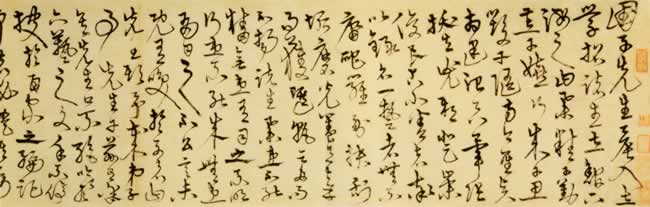 國子先生晨入太
學招諸生立館下
誨之曰業精于勤
荒于嬉行成于思
毀于隨方今聖賢
相逢治具畢張
拔去兇邪登崇
俊良占小善者率
以錄名一藝者無不
庸爬羅剔抉刮
垢磨光蓋有幸
而獲選孰云多而
不揚諸生業患不能
精無患有司之不明
行患不能成無患
有司之不公言未
既有笑于列者曰
先生欺予哉弟子
事先生于茲有年
矣先生口不絕吟於
六藝之文手不停
披於百家之編記